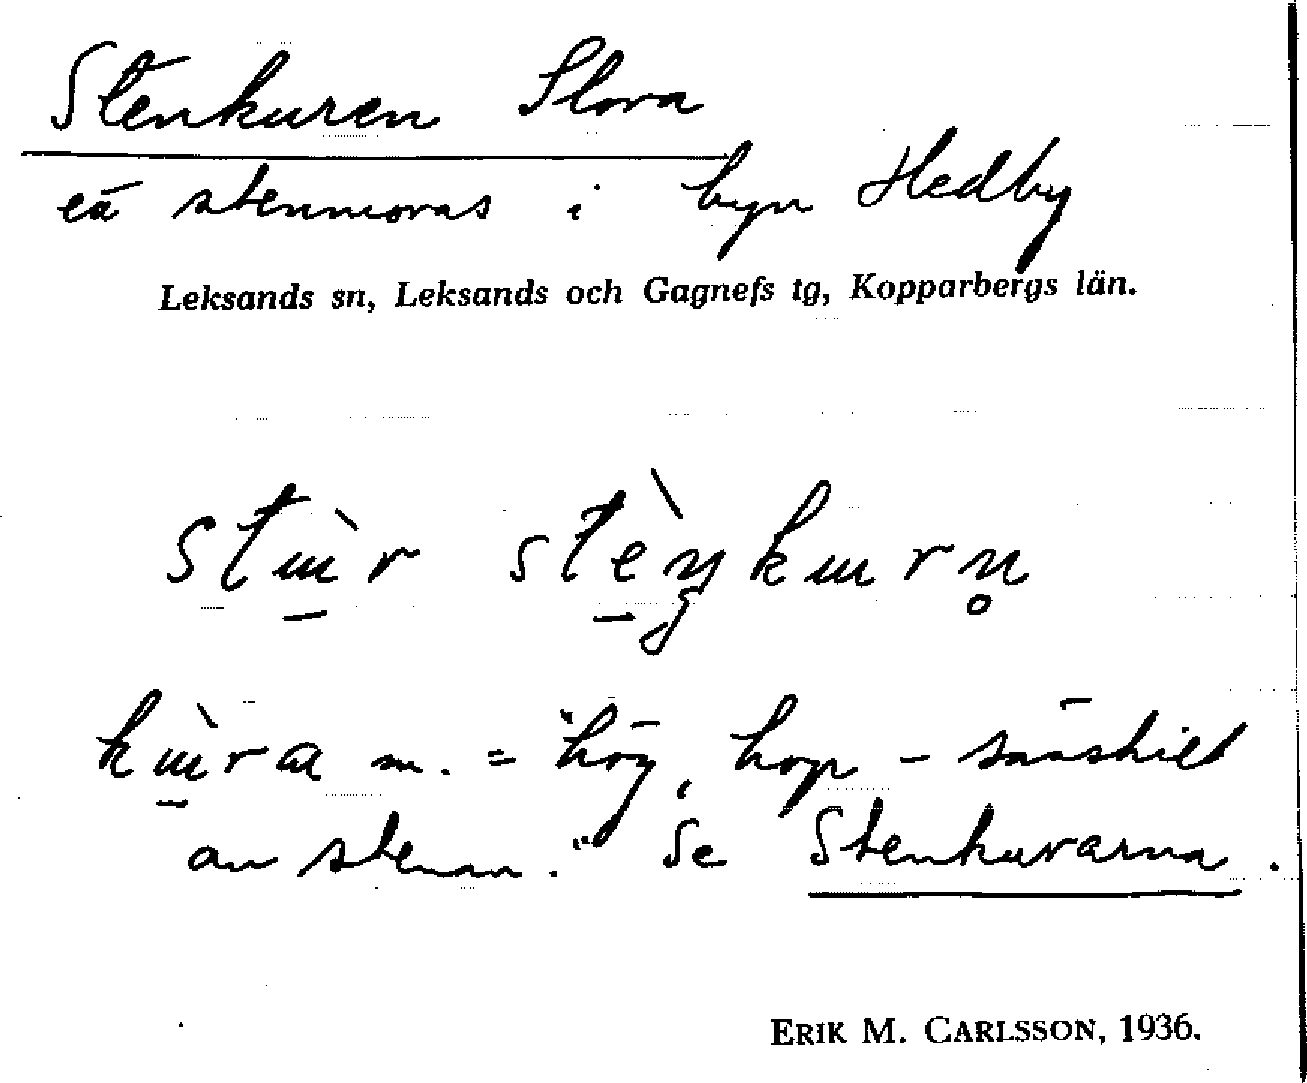 Stenkuren Stora
eä stenmoras i byn Hedby
Leksands sn, Leksands och Gagnefs tg, Kopparbergs län.
m. = "hög, hop – särskilt
av stenar." Se Stenkurarna.
ERIK M. CARLSSON, 1936.